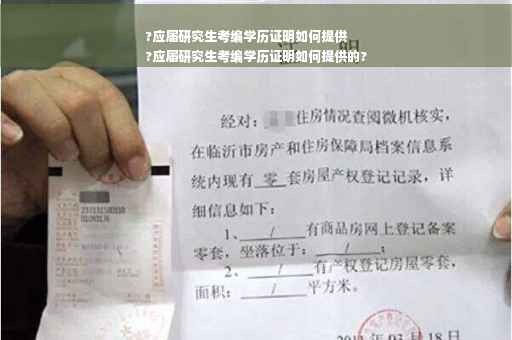 ?应届研究生考编学历证明如何提供
?应届研究生考编学历证明如何提供的?
证 明
经对：住房情况查阅微机核实，
在临沂市房产和住房保障局档案信息系
统内现有 零 套房屋产权登记记录，详
细信息如下：
1、 / 有商品房网上登记备案
零套，坐落位于： / ；
2、 / 有产权登记房屋零套，
面积： / 平方米。
03月18日